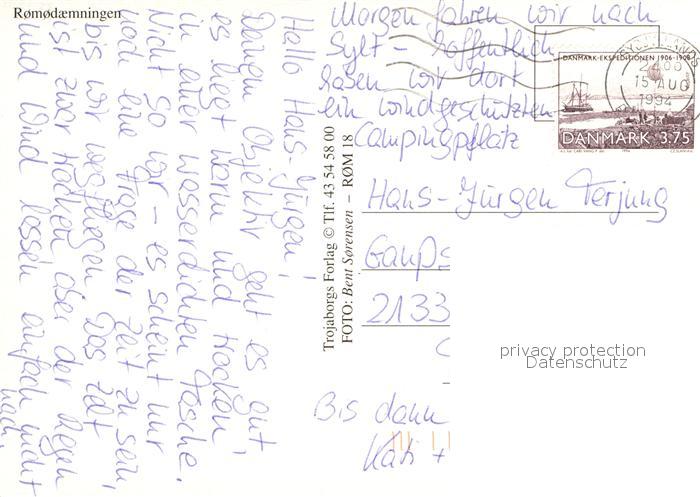 Rømødæmningen
Hallo Hans-Jürgen!
Deinem Objektiv geht es gut,
es liegt warm und trocken
in einer wasserdichten Tasche.
Nicht so wir - es scheint nur
noch eine Frage der Zeit zu sein,
bis wir wegfliegen. Das Zelt
ist zwar trocken aber der Regen
und Wind lassen einfach nicht
nach.
Morgen fahren wir nach
Sylt - hoffentlich
haben wir dort
ein windgeschützten
Campingplatz
Trojaborgs Forlag © Tlf. 43 54 58 00
FOTO: Bent Sørensen - RØM 18
DANMARK-EKSPEDITIONEN 1906-1908
DANMARK 3.75
15 AUG
1994
Hans-Jürgen Terjung
2133
privacy protection
Datenschutz
Bis dann
Kati +